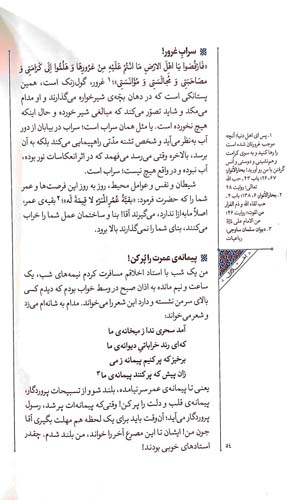 سراب غرور!
«فَارْفُضُوا يَا أَهْلَ الأَرْضِ مَا أَنْتُمْ عَلَيْهِ مِنْ غُرُورِهَا وَ هَلُمُّوا إِلَى كَرَامَتِي وَ
مُصَاحَبَتِي وَ مُجَالَسَتِي وَ مُؤَانَسَتِي»؛ ۱ غرور، گول‌زنک است، همین
پستانکی است که در دهان بچه‌ی شیرخواره می‌گذارند و او مدام
می‌مکد و شاید تصوّر می‌کند که مبالغی شیر خورده و حال اینکه
هیچ نخورده است. یا مثل همان سراب است؛ سراب در بیابان از دور
آب به‌نظر می‌آید و شخص تشنه مدّتی راهپیمایی می‌کند بلکه به آن
برسد، بالاخره وقتی می‌رسد می‌فهمد که در اثر انعکاسات نور بوده،
آب نبوده و در واقع هیچ نیست؛ سراب است.
شیطان و نفس و عوامل محیط، روز به روز این فرصت‌ها و عمر
شما را که حضرت فرمود: «بَقِيَّةُ عُمُرِ الْمُؤْمِنِ لَا قِيمَةَ لَهُ» ۲ بقیه‌ی عمر،
اصلاً مابه‌ازا ندارد، می‌گیرند آقا! بنا و ساختمان عمل شما را خراب
می‌کنند، بنای شما را نمی‌گذارند بالا برود.
پیمانه‌ی عمرت را پُر کن!
من یک شب با استاد اخلاقم مسافرت کردم نیمه‌های شب، یک
ساعت و نیم مانده به اذان صبح در وسط خواب بودم که دیدم کسی
بالای سر من نشسته و دارد این شعر را می‌خواند. مدام به شانه‌ام می‌زد
و شعر می‌خواند:
آمد سحری ندا ز میخانه‌ی ما
که‌ای رند خراباتیِ دیوانه‌ی ما
برخیز که پر کنیم پیمانه ز می
زان پیش که پر کنند پیمانه‌ی ما ۳
یعنی تا پیمانه‌ی عمر سرنیامده، بلند شو و از تسبیحات پروردگار،
پیمانه‌ی قلب و دلت را پر کن! وقتی که پیمانه‌ات پر شد، رسول
پروردگار می‌آید؛ آن‌وقت باید برای یک لحظه هم مهلت بگیری آقا
جون من! ایشان تا این مصرع آخر را خواند، من بلند شدم. چقدر
استادهای خوبی بودند!
۱. پس ای اهل دنیا! آنچه
موجب غرورتان شده است
را رها کنید و به سوی کرامت
و هم‌نشینی و دوستی و اُنس
گرفتن با من رو آورید؛ بحارالأنوار
۶۷، ۲۶، باب ۴۳، حب الله
تعالی؛ روایت ۲۸
۲. بحارالأنوار ۶، ۱۳۸، باب ۴،
حب لقاء الله و ذم الفرار
من الموت؛ روایت ۴۶؛
از امام علی
۳. دیوان سلمان ساوجی،
رباعیات
۵۴